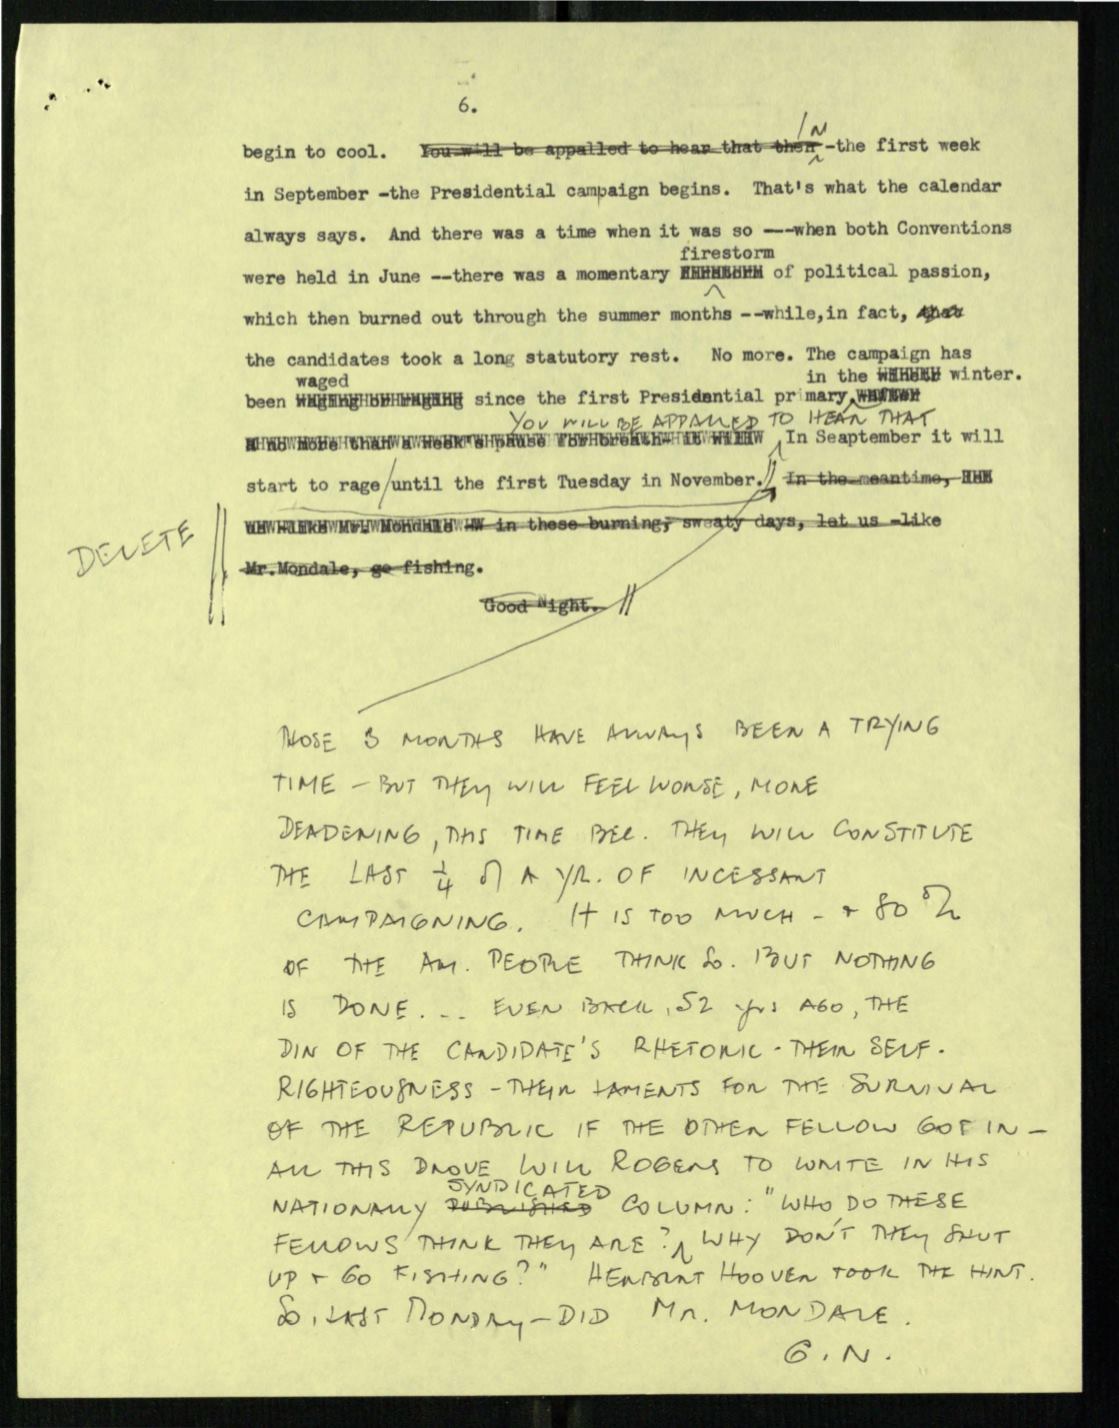 6.
IN
begin to cool. You will be appalled to hear that then -the first week
in September -the Presidential campaign begins. That's what the calendar
always says. And there was a time when it was so ---when both Conventions
firestorm
were held in June --there was a momentary of political passion,
which then burned out through the summer months --while,in fact, that
the candidates took a long statutory rest. No more. The campaign has
waged in the winter.
been since the first Presidential primary
YOU WILL BE APPALLED TO HEAR THAT
a no more than a week's pause for breath- it will In Seaptember it will
start to rage/until the first Tuesday in November.// In the meantime,
DELETE
in these burning, sweaty days, let us -like
Mr.Mondale, go fishing.
Good Night. //
THOSE 3 MONTHS HAVE ALWAYS BEEN A TRYING
TIME – BUT THEY WILL FEEL WORSE, MORE
DEADENING, THIS TIME BEC. THEY WILL CONSTITUTE
THE LAST 1/4 OF A YR. OF INCESSANT
CAMPAIGNING. IT IS TOO MUCH – + 80 %
OF THE AM. PEOPLE THINK SO. BUT NOTHING
IS DONE. .. EVEN BACK, 52 yrs AGO, THE
DIN OF THE CANDIDATE'S RHETORIC - THEIR SELF-
RIGHTEOUSNESS – THEIR LAMENTS FOR THE SURVIVAL
OF THE REPUBLIC IF THE OTHER FELLOW GOT IN –
ALL THIS DROVE WILL ROGERS TO WRITE IN HIS
SYNDICATED
NATIONALLY PUBLISHED COLUMN: "WHO DO THESE
FELLOWS THINK THEY ARE? WHY DON'T THEY SHUT
UP + GO FISHING?" HERBERT HOOVER TOOK THE HINT.
SO, LAST MONDAY – DID MR. MONDALE.
G.N.